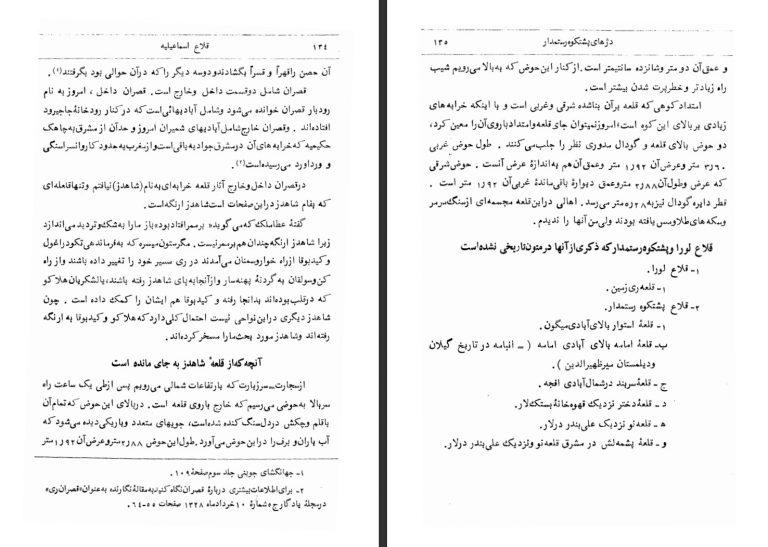 ۱۳۴ قلاع اسماعیلیه
آن حصن راقهراً و قسراً بگشادندودوسه دیگر راکه درآن حوالی بود بگرفتند(۱).
قصران شامل دوقسمت داخل وخارج است. قصران داخل ، امروز به نام
رودبار قصران خوانده می‌شود وشامل آبادیهائی‌است که درکنار رودخانهٔ جاجیرود
افتاده‌اند . وقصران خارج شامل آبادیهای شمیران امروز و حدآن ازمشرق به‌چاهک
حکیمیه که‌خرابه‌های آن درمشرق‌جوادیه‌باقی‌است‌وازمغرب به‌حدود کاروانسراسنگی
و ورداورد می‌رسیده‌است(۲).
درقصران داخل‌وخارج آثار قلعه خرابه‌ای به‌نام (شاهدز) نیافتم وتنهاقلعه‌ای
که بنام شاهدز دراین صفحات است‌شاهدز ارنگه‌است.
گفتهٔ عطاملک‌که می‌گوید« برممرافتادبود» باز مارا به‌شک‌وتردید می‌اندازد
زیرا شاهدز ارنگه چندان هم برممرنیست . مگرستون میسره که به‌فرماندهی تکودراغول
و کیدبوقا ازراه خواروسمنان می‌آمدند در ری مسیر خود را تغییر داده باشند واز راه
کن‌وسولقان به گردنهٔ پهنه‌سار وازآنجابه‌پای شاهدز رفته باشند، یالشکریان هلاکو
که درقلب‌بوده‌اند بدانجا رفته و کیدبوقا هم ایشان را کمک داده است . چون
شاهدز دیگری دراین‌نواحی نیست احتمال کلی‌دارد که هلاکو و کیدبوقا به ارنگه
رفته‌اند وشاهدز مورد بحث‌مارا مسخرکرده‌اند.
آنچه‌که‌از قلعهٔ شاهدز به جای مانده است
ازسجارت‌ـ‌سرزیارت که بارتفاعات شمالی می‌رویم پس ازطی یک ساعت راه
سربالا به‌حوضی می‌رسیم که خارج باروی قلعه است . دربالای این حوض که‌تمام‌آن
باقلم وچکش دردل‌سنگ کنده شده‌است، جویهای متعدد وباریکی‌دیده می‌شود که
آب باران‌و برف را دراین‌حوض می‌آورد. طول‌این‌حوض ۲٫۸۸ متروعرض‌آن ۱٫۹۲ متر
۱ـ جهانگشای جوینی جلد سوم‌صفحهٔ ۱۰۹.
۲ـ برای‌اطلاعات‌بیشتری دربارهٔ قصران‌نگاه کنیدبه‌مقالهٔ نگارنده به‌عنوان«قصران‌ری»
درمجلهٔ یادگارج ۵ شمارهٔ ۱۰ خردادماه ۱۳۲۸ صفحات ۵۵-۶۴.
دژهای‌پشتکوه‌رستمدار ۱۳۵
و عمق‌آن دو متر وشانزده سانتیمتر است. ازکنار این‌حوض که به‌بالا می‌رویم شیب
راه زیادتر و خطرپرت شدن بیشتر است .
امتداد کوهی که قلعه برآن بناشده شرقی وغربی است و با اینکه خرابه‌های
زیادی بربالای این کوه است‌،امروزنمیتوان جای‌قلعه‌وامتدادباروی‌آن‌رامعین‌کرد،
دو حوض بالای قلعه و گودال مدوری نظر را جلب‌می‌کنند . طول حوض غربی
۳٫۶ متر وعرض‌آن ۱٫۹۲ متر وعمق‌آن هم‌به‌اندازهٔ عرض آنست . حوض‌شرقی
که عرض وطول‌آن ۲٫۸۸ متروعمق دیوارهٔ باقی‌ماندهٔ غربی‌آن ۱٫۹۲ متر است .
قطر دایره گودال نیزبه ۲٫۸ متر می‌رسد. اهالی دراین‌قلعه مجسمه‌ای ازسنگ‌مرمر
وسکه‌های‌طلاومس یافته بودند ولی‌من آنها را ندیدم .
قلاع لورا وپشتکوه‌رستمدارکه ذکری‌ازآنها درمتون‌تاریخی نشده‌است
۱ـ قلاع لورا.
۱ـ قلعه‌ری‌زمین .
۲ـ قلاع پشتکوه رستمدار.
۱ـ قلعهٔ استوار بالای‌آبادی‌میگون.
ب‌ـ قلعهٔ امامه بالای آبادی امامه (ـ انبامه در تاریخ گیلان
ودیلمستان میرظهیرالدین ).
ج ـ قلعهٔ‌سربند درشمال‌آبادی افجه .
د ـ قلعهٔ‌دختر نزدیک قهوه‌خانهٔ بستک‌لار.
ه‍ ـ قلعه‌نو نزدیک علی‌بندر درلار.
و ـ قلعهٔ پشمه‌لش در مشرق قلعه‌نو ونزدیک علی‌بندر درلار.